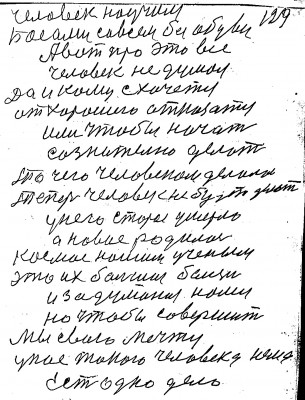 человек научил 129
Босами совсем без обуви
А вот про это все
человек не думал
Да и кому схочету
от хорошего отказату
или чтобы начат
сознателно делат
Это чего человеком делала
Тепер человек не будет делат
у него старое умерло
а новое родилос
Космос нашим ученым
это их болшим
и задумался нами
но чтобы совершит
Мы свого мечту
у нас такого человека нема
Ест одно дело